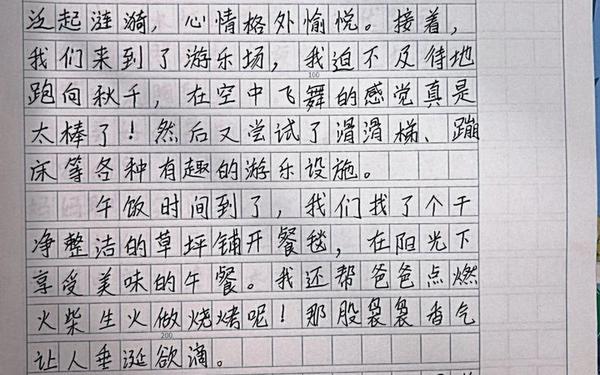 泛起涟漪，心情格外愉悦。接着，
我们来到了游乐场，我迫不及待地
100
跑向秋千，在空中飞舞的感觉真是
太棒了！然后又尝试了滑滑梯、蹦
床等各种有趣的游乐设施。
午饭时间到了，我们找了个干
净整洁的草坪铺开餐毯，在阳光下
享受美味的午餐。我还帮爸爸点燃
火柴生火做烧烤呢！那股袅袅香气
200
让人垂涎欲滴。